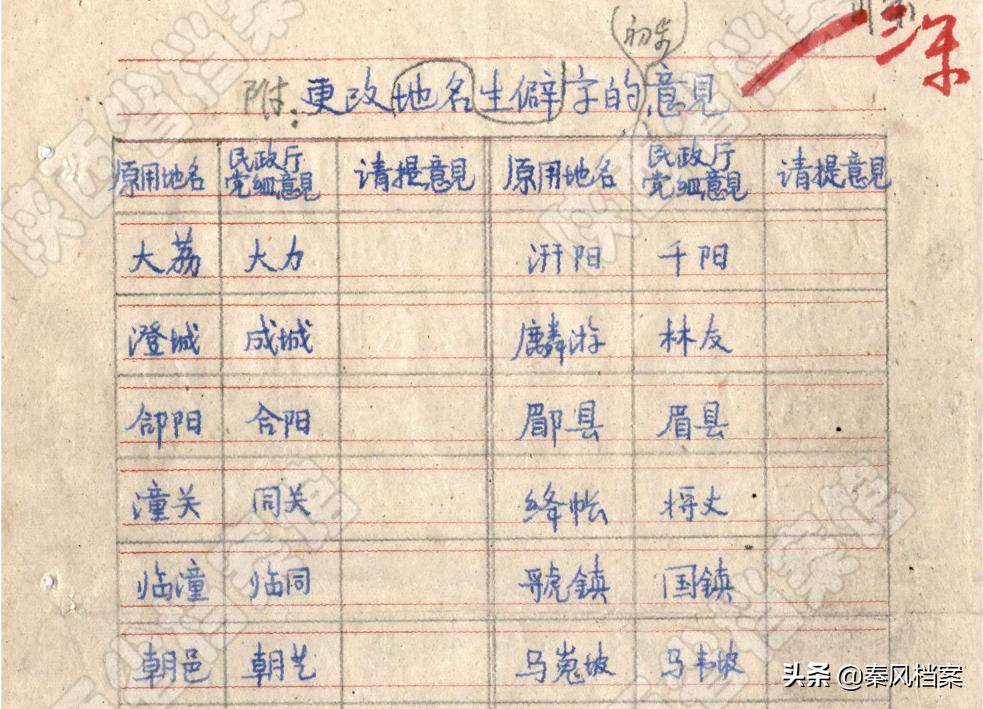 初步
附：更改地名生僻字的意见
原用地名 民政厅党组意见 请提意见 原用地名 民政厅党组意见 请提意见
大荔 大力 汧阳 千阳
澄城 成城 麟游 林友
郃阳 合阳 郿县 眉县
潼关 同关 绛帐 将丈
临潼 临同 虢镇 国镇
朝邑 朝艺 马嵬坡 马韦坡
头条 @秦风档案
陕西省档案馆